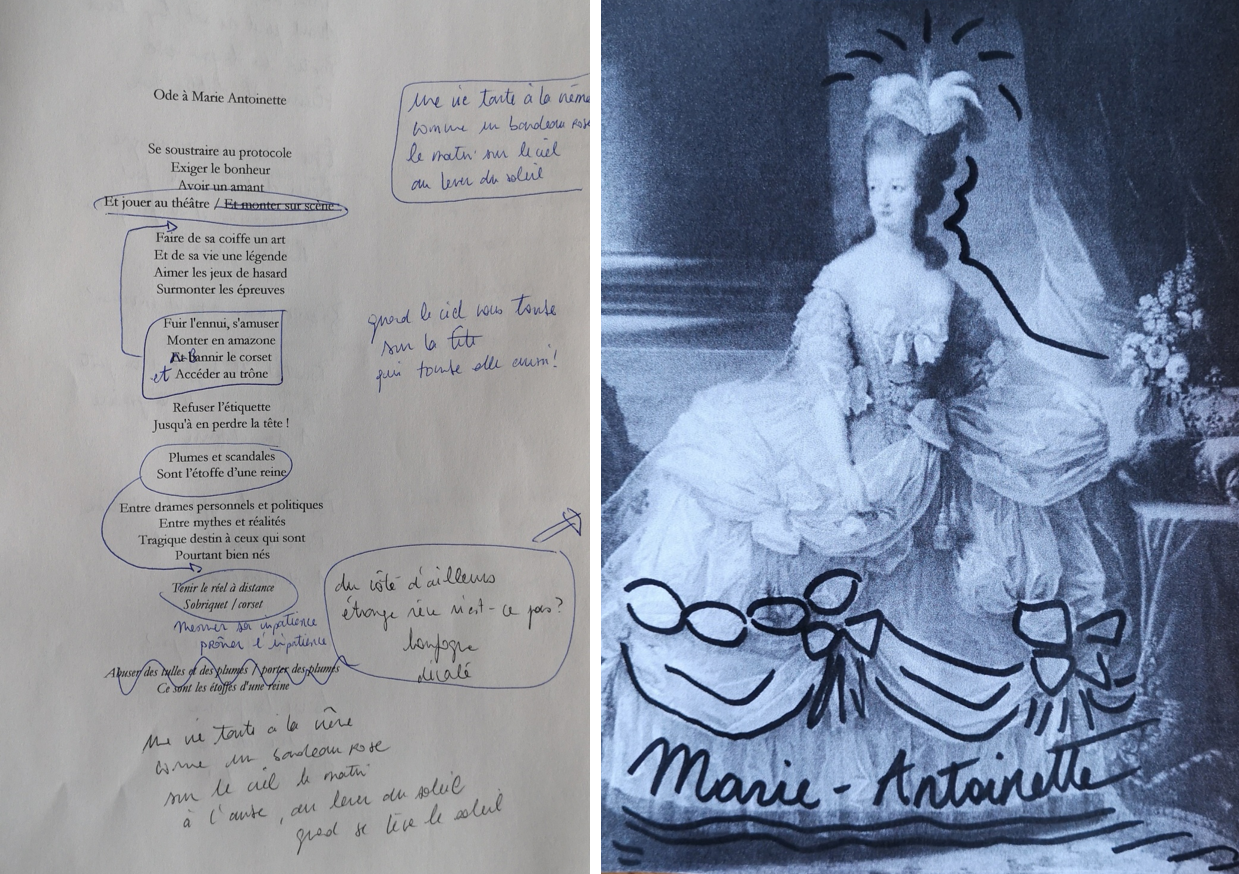 Ode à Marie Antoinette
Se soustraire au protocole
Exiger le bonheur
Avoir un amant
Et jouer au théâtre / Et monter sur scène
Faire de sa coiffe un art
Et de sa vie une légende
Aimer les jeux de hasard
Surmonter les épreuves
Fuir l'ennui, s'amuser
Monter en amazone
Bannir le corset
et Accéder au trône
Refuser l'étiquette
Jusqu'à en perdre la tête !
Plumes et scandales
Sont l'étoffe d'une reine
Entre drames personnels et politiques
Entre mythes et réalités
Tragique destin à ceux qui sont
Pourtant bien nés
Tenir le réel à distance
Sobriquet / corset
prôner l'impatience
Abuser des tulles et des plumes / porter des plumes
Ce sont les étoffes d'une reine
une vie toute à la
comme un bandeau rose
sur le ciel le matin
à l'aube, au lever du soleil
quand se lève le soleil
une vie toute à la
comme un bandeau rose
le matin sur le ciel
au lever du soleil
quand le ciel vous tombe
sur la tête
qui tombe elle aussi !
du côté d'ailleurs
étrange n'est-ce pas ?
décalé
Marie-Antoinette